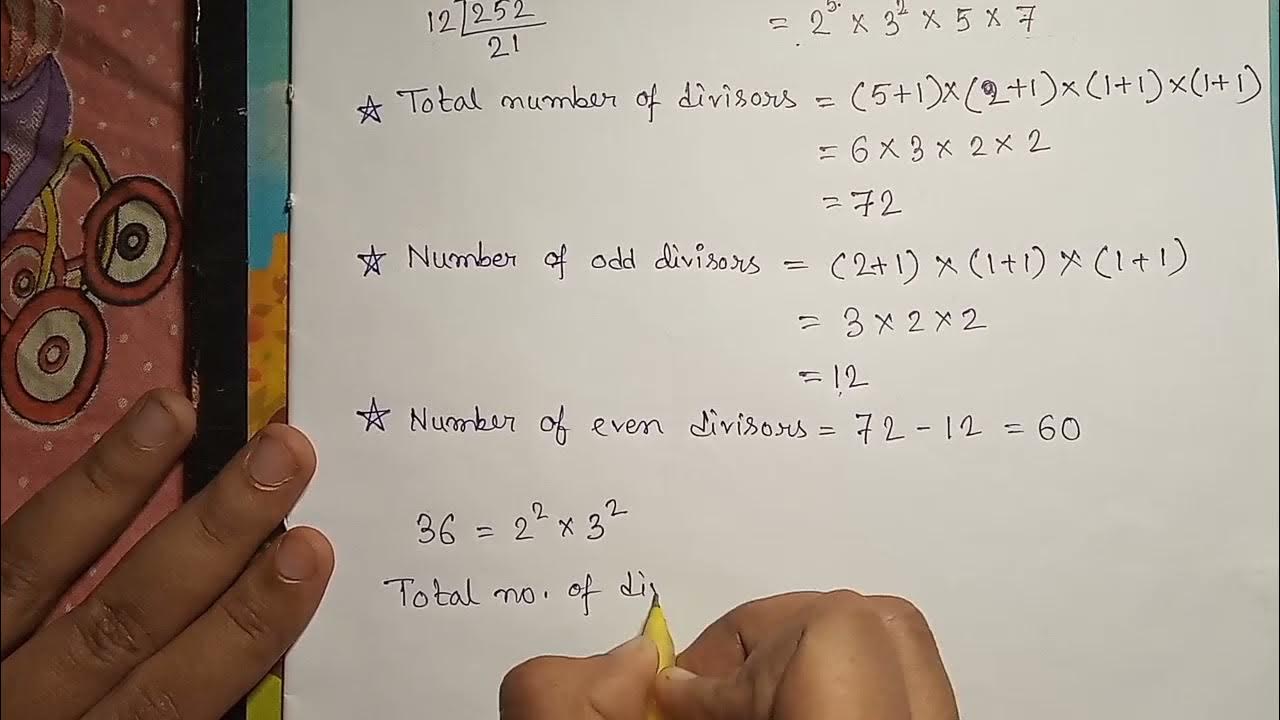 12 252 = 2⁵ × 3² × 5 × 7
21
☆ Total number of divisors = (5+1)×(2+1)×(1+1)×(1+1)
= 6 × 3 × 2 × 2
= 72
☆ Number of odd divisors = (2+1) × (1+1) × (1+1)
= 3 × 2 × 2
= 12
☆ Number of even divisors = 72 - 12 = 60
36 = 2² × 3²
Total no. of div